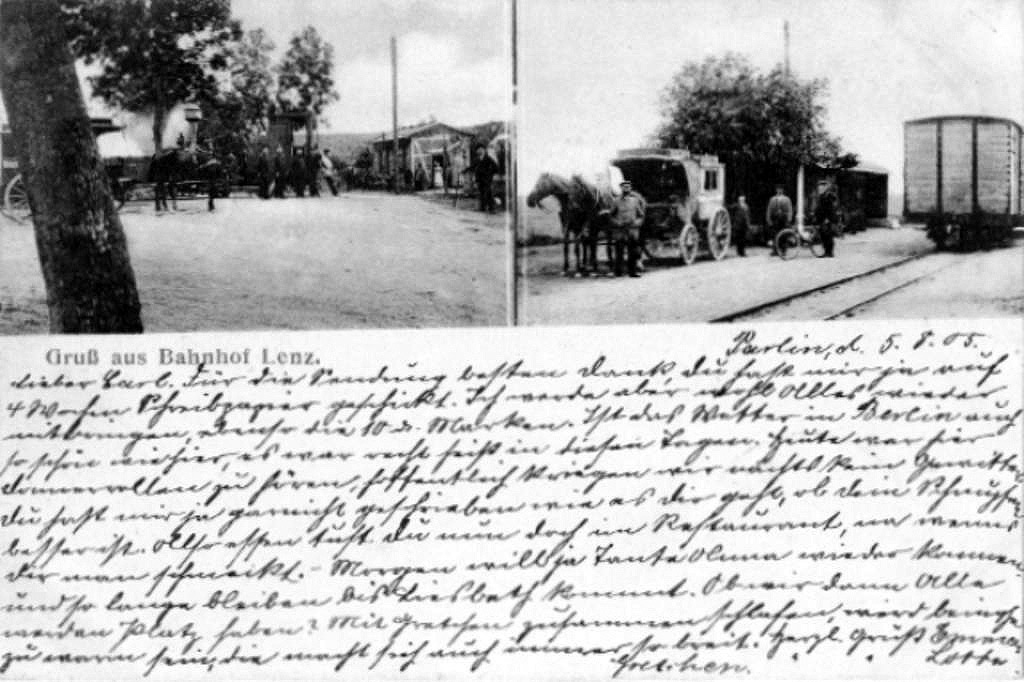 Gruß aus Bahnhof Lenz.
d. 5. 8. 05.
Lieber Carl. Für die Sendung besten Dank, du hast mir ja auf
4 Wochen Schreibpapier geschickt. Ich werde aber wohl Alles wieder
mitbringen, ebenso die 10 Marken. Ist das Wetter in Berlin auch
so schön wie hier, es war recht heiß in diesen Tagen. Heute war hier
Donnerrollen zu hören, hoffentlich kriegen wir nachts kein Gewitter
Du hast mir ja garnicht geschrieben wie es dir geht, ob dein Schnupfen
besser ist. Also essen tust du nun doch im Restaurant, na wenns
dir man schmeckt. - Morgen will ja Tante wieder kommen
und so lange bleiben bis Liesbeth kommt. Ob wir dann Alle
werden Platz haben? Mit Gretchen zusammen schlafen, wird
zu warm sein, die macht sich auch immer so breit. Herzl. Gruß Emma
Gretchen. " " Lotte